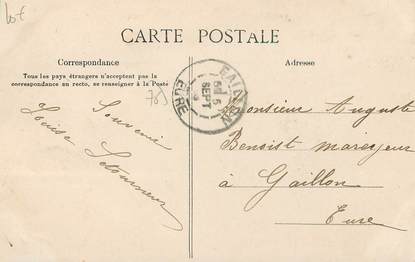 lot
CARTE POSTALE
Correspondance
Adresse
Tous les pays étrangers n'acceptent pas la
correspondance au recto, se renseigner à la Poste
GAILLON
5
SEPT
EURE
Souvenir
Louise Letourneur
Monsieur Auguste
Benoist mareyeur
à Gaillon
Eure